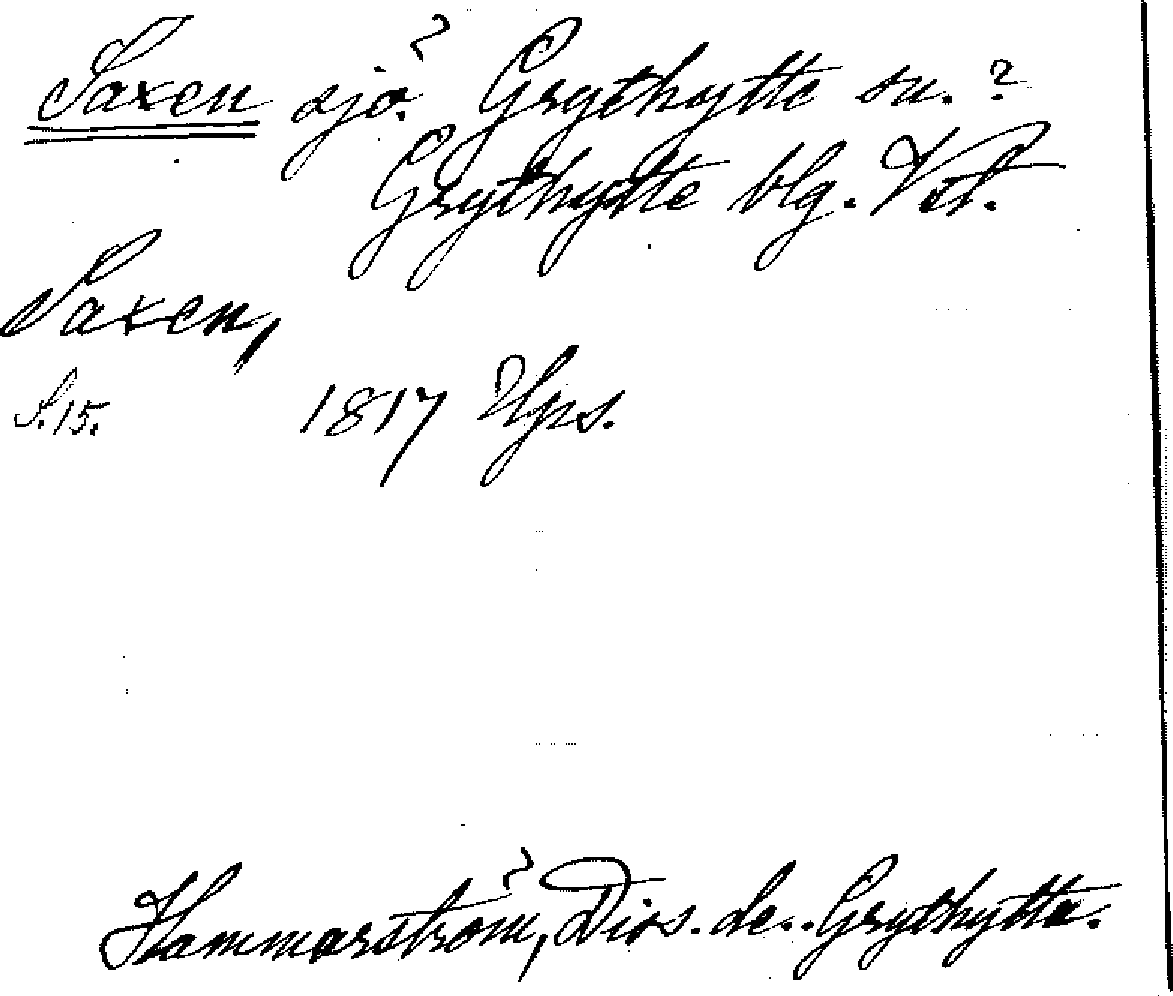 Saxen sjö. Grythytte sn.?
Grythytte blg. Vstl.
Saxen,
S.15. 1817 Ups.
Hammarström, Diss. de.. Grythytta.